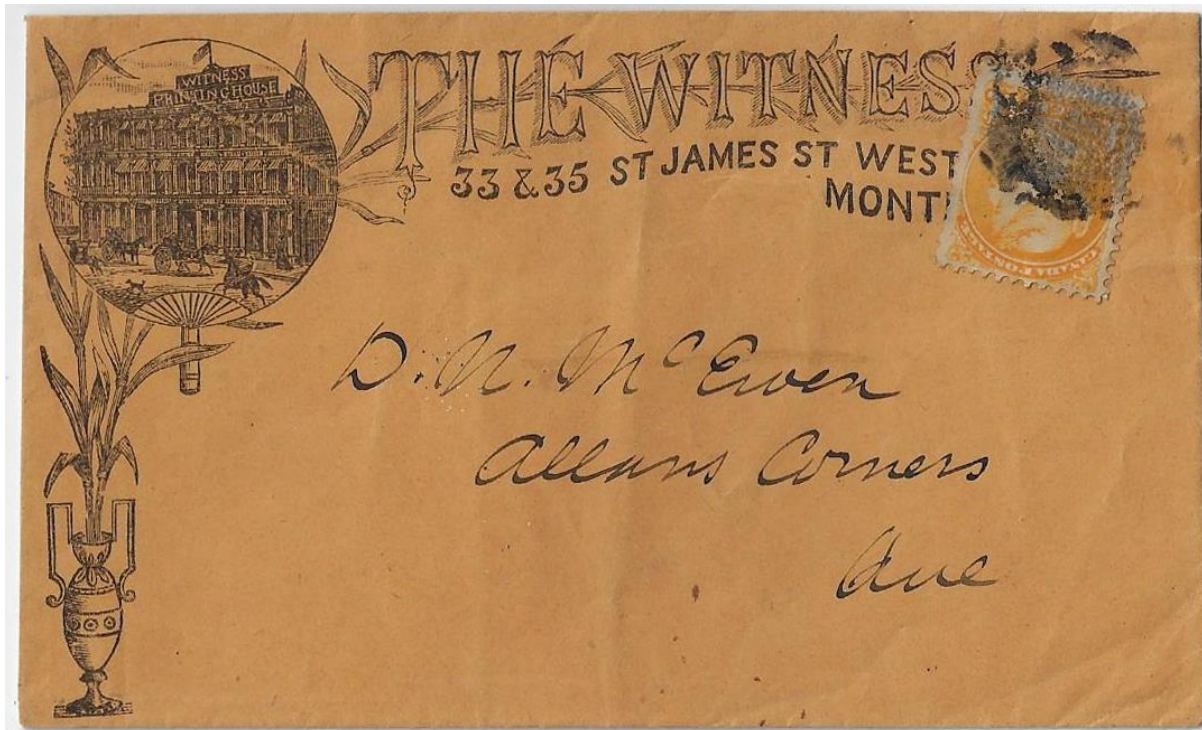 WITNESS
PRINTING HOUSE
THE WITNESS
33 & 35 ST JAMES ST WEST
MONT
CANADA POSTAGE
D. N. McEwen
Allans Corners
Que